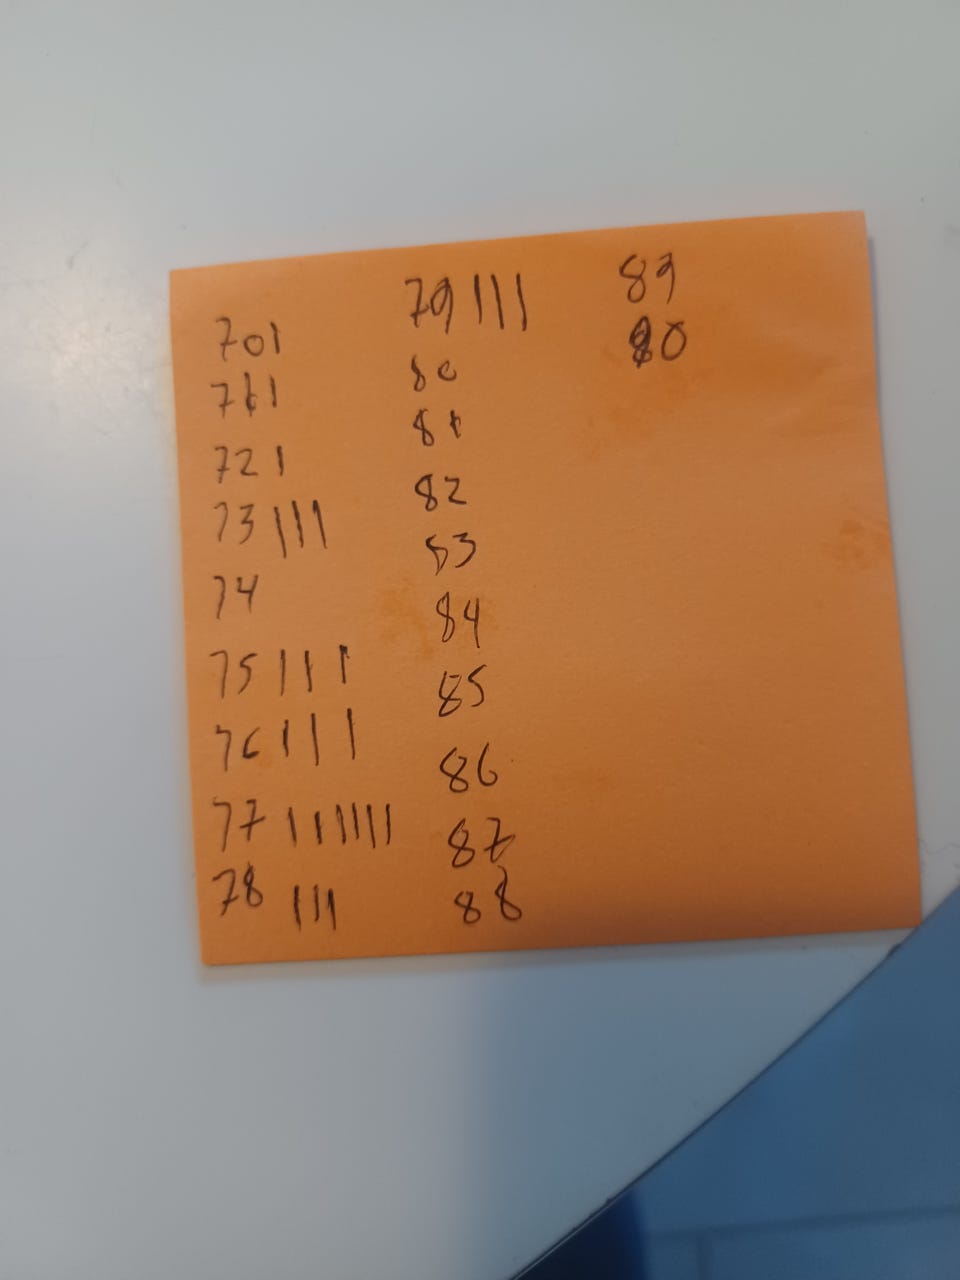 70 |
71 |
72 |
73 |||
74
75 |||
76 |||
77 ||||||
78 |||
79 |||
80
81
82
83
84
85
86
87
88
89
90